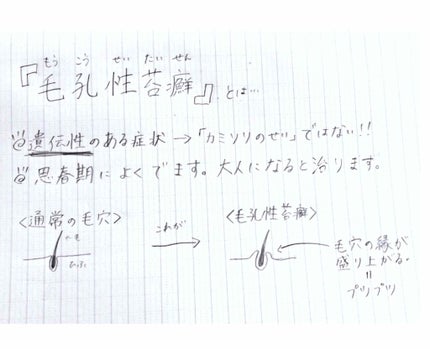 もう こう せい たい せん
『毛孔性苔癬』とは…
遺伝性のある症状→「カミソリのせい」ではない!!
思春期によくでます。大人になると治ります。
<通常の毛穴>
これが
<毛孔性苔癬>
←毛
ひふ
毛穴の縁が
盛り上がる。
=
プツプツ